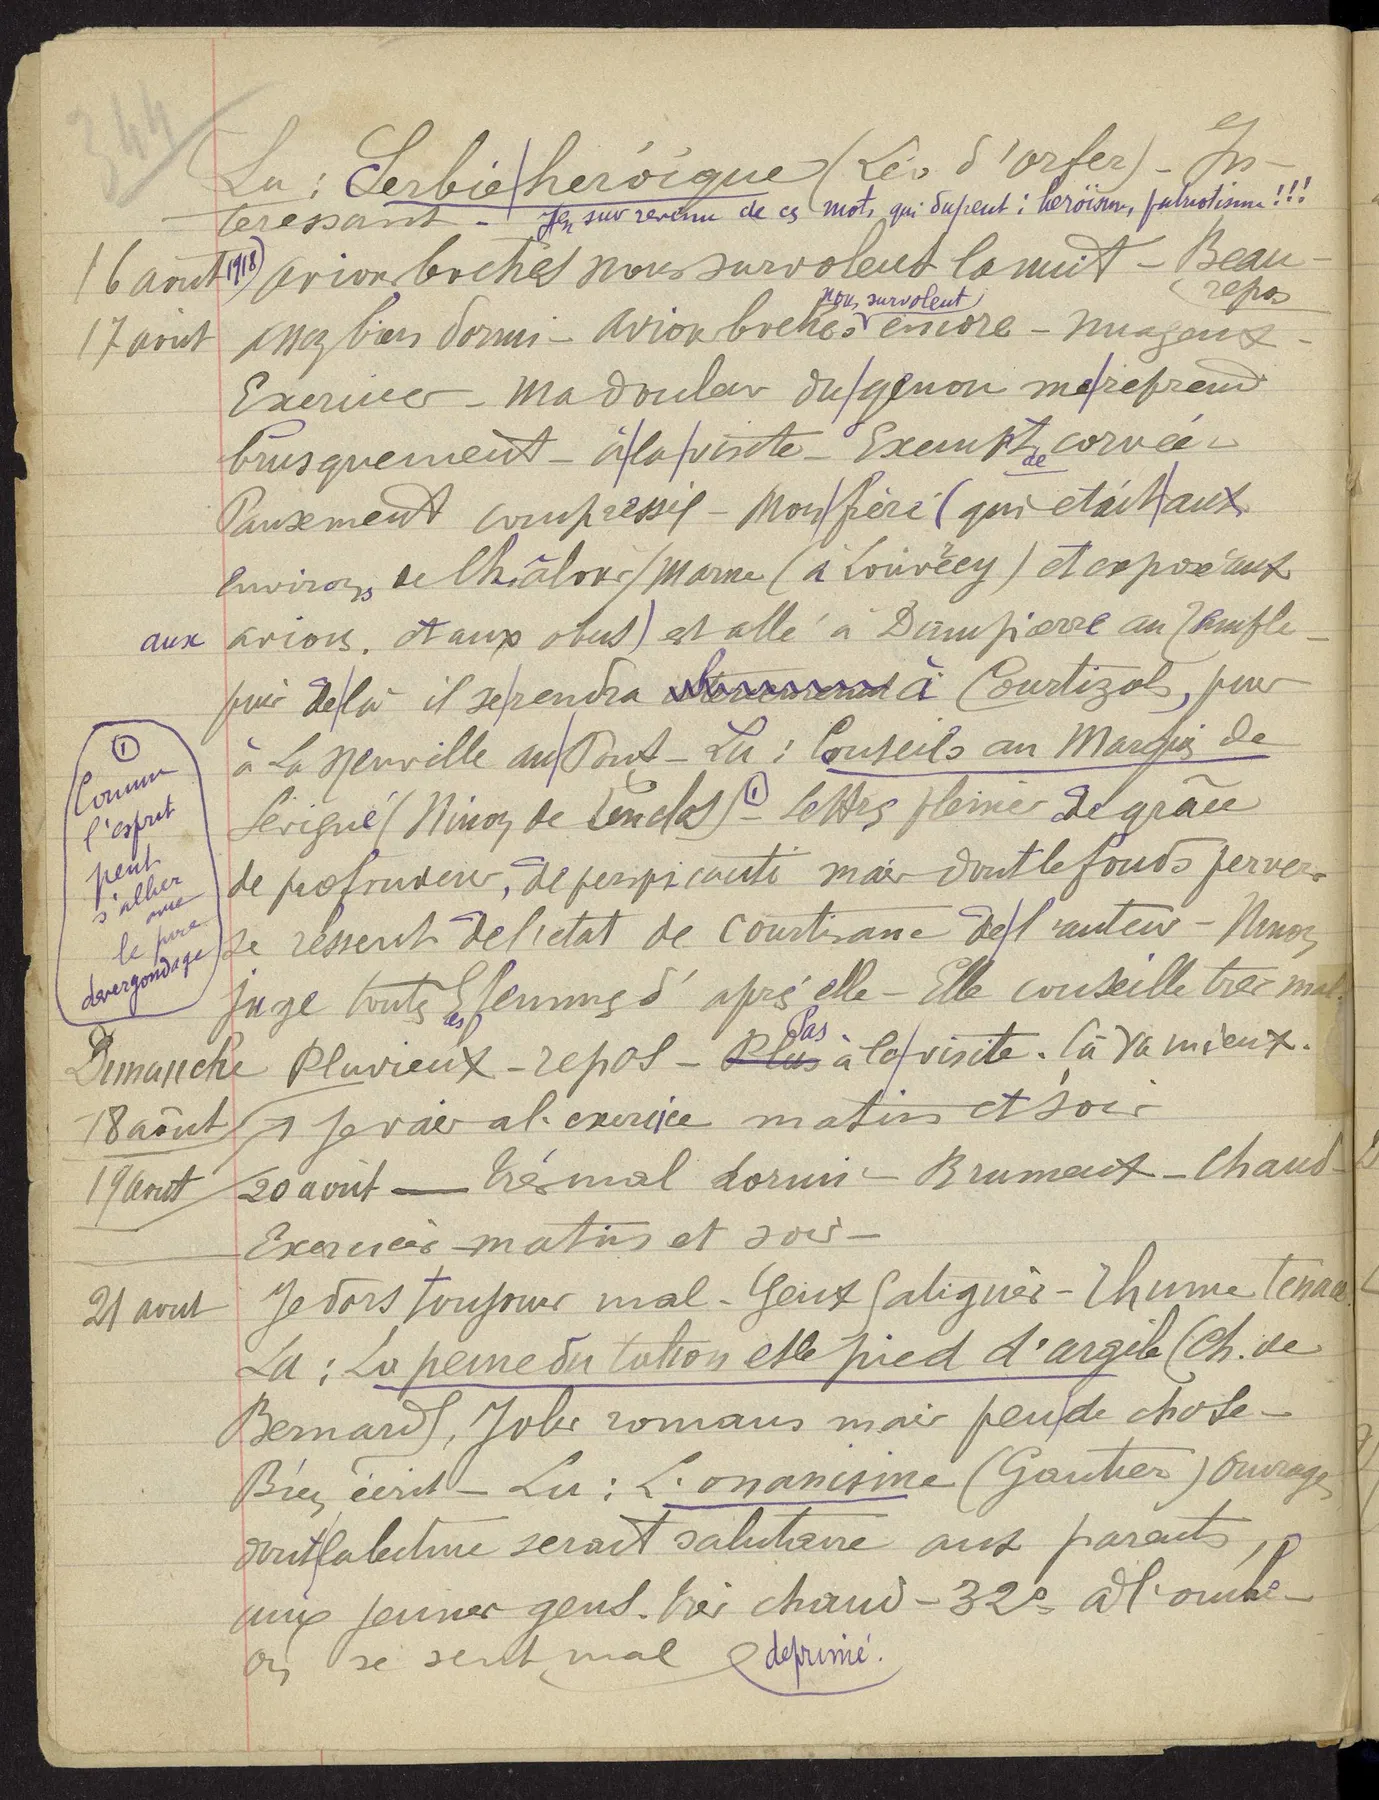 344
Lu : Serbie héroïque (Léo d'Orfer) - In-
téressant - J'en suis revenu de ces mots qui dupent : héroïsme, patriotisme !!!
16 août (1918) avions boches nous survolent la nuit - Beau -
repos
17 août Assez bien dormi - Avions boches nous survolent encore - nuageux -
Exercice - Ma douleur du genou me reprend
brusquement - à la visite - Exempt de corvée -
Pansement compressif - Mon frère (qui était aux
environs de Châlons / Marne (à Louvercy) et exposé aux
aux avions et aux obus) est allé à Dampierre au Temple -
puis de là il se rendra à Courtizols, puis
à La Neuville au Pont - Lu : Conseils au Marquis de
Sévigné (Ninon de Lenclos) ① - Lettres pleines de grâce
de profondeur, de perspicacité mais dont le fonds pervers
se ressent de l'état de courtisane de l'auteur - Ninon
juge toutes les femmes d'après elle - Elle conseille très mal.
①
Comme
l'esprit
peut
s'allier
avec
le pire
dévergondage
Dimanche Pluvieux - repos - Plus Pas à la visite. Ça va mieux.
18 août Je vais à l'exercice matin et soir
19 août 20 août — Très mal dormi - Brumeux - Chaud -
Exercices matin et soir -
21 aout Je dors toujours mal - Yeux fatigués - Rhume tenace
Lu : La peine du talion et le pied d'argile (Ch. de
Bernard), Jolis romans mais peu de chose -
Bien écrit - Lu : L'onanisme (Gautier) Ouvrage
dont la lecture serait salutaire aux parents,
aux jeunes gens. Très chaud - 32° à l'ombre -
On se sent mal déprimé.